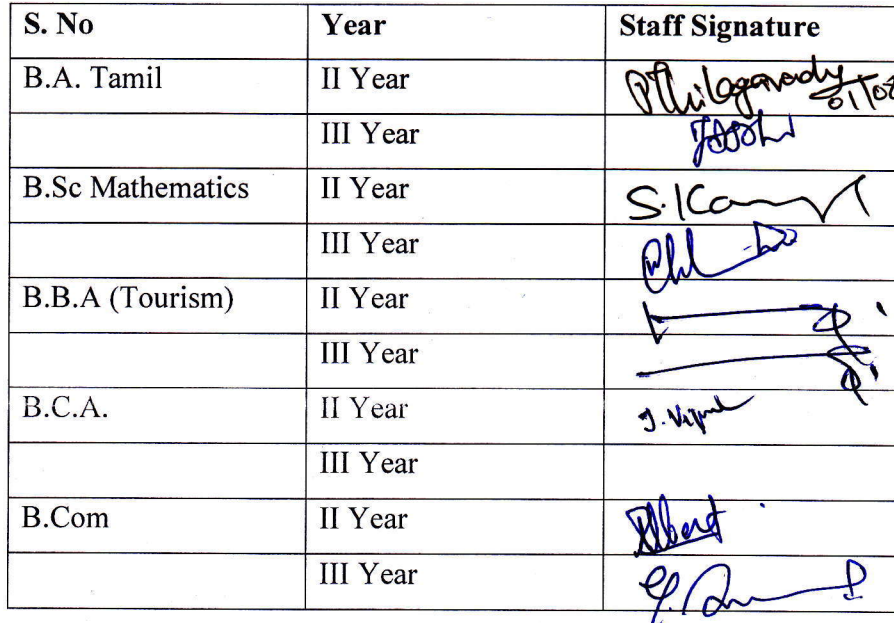 S. No Year Staff Signature
B.A. Tamil II Year PThilagavady 01/08
III Year
B.Sc Mathematics II Year
III Year
B.B.A (Tourism) II Year
III Year
B.C.A. II Year
III Year
B.Com II Year Albert
III Year